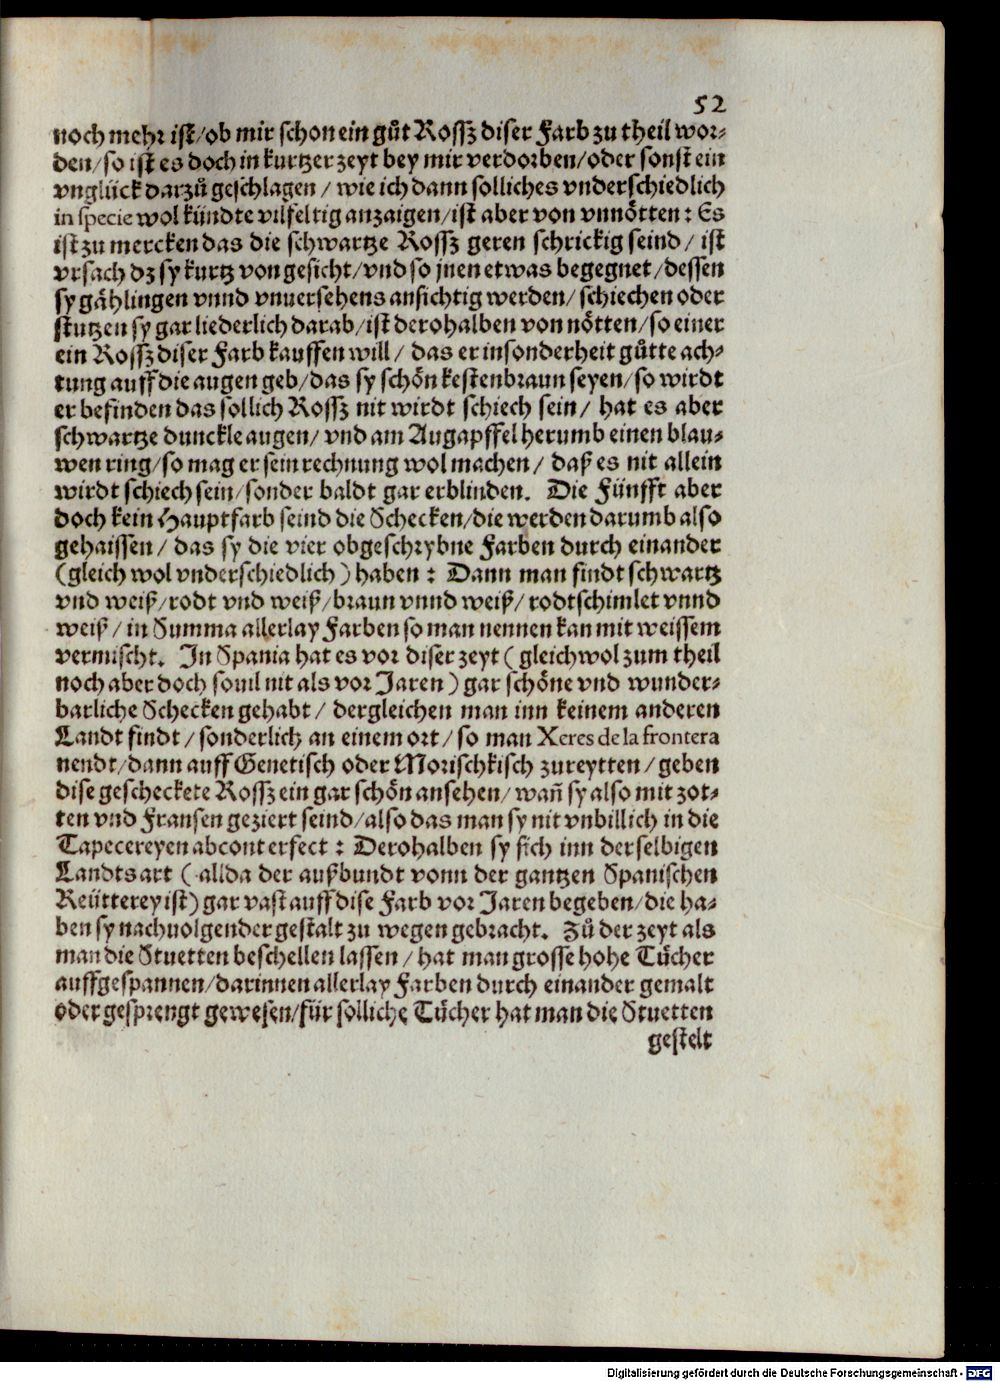 52
noch mehr ist/ob mir schon ein gůt Rossz diser Farb zu theil wor-
den/so ist es doch in kurtzer zeyt bey mir verdorben/oder sonst ein
vnglück darzů geschlagen / wie ich dann solliches vnderschiedlich
in specie wol kündte vilfeltig anzaigen/ist aber von vnnötten: Es
ist zu mercken das die schwartze Rossz geren schrickig seind/ ist
vrsach dz sy kurtz von gesicht/vnd so jnen etwas begegnet/dessen
sy gählingen vnnd vnuersehens ansichtig werden/ schiechen oder
stutzen sy gar liederlich darab/ist derohalben von nötten/so einer
ein Rossz diser Farb kauffen will/ das er insonderheit gůtte ach-
tung auff die augen geb/das sy schön kestenbraun seyen/so wirdt
er befinden das sollich Rossz nit wirdt schiech sein/ hat es aber
schwartze dunckle augen/ vnd am Augapffel herumb einen blau-
wen ring/so mag er sein rechnung wol machen/ daß es nit allein
wirdt schiech sein/sonder baldt gar erblinden. Die Fünfft aber
doch kein Hauptfarb seind die Schecken/die werden darumb also
gehaissen/ das sy die vier obgeschrybne Farben durch einander
(gleich wol vnderschiedlich) haben: Dann man findt schwartz
vnd weiß/rodt vnd weiß/braun vnnd weiß/ rodtschimlet vnnd
weiß/ in Summa allerlay Farben so man nennen kan mit weissem
vermischt. In Spania hat es vor diser zeyt (gleichwol zum theil
noch aber doch souil nit als vor Jaren) gar schöne vnd wunder-
barliche Schecken gehabt/ dergleichen man inn keinem anderen
Landt findt/ sonderlich an einem ort/ so man Xeres de la frontera
nendt/dann auff Genetisch oder Morischkisch zureytten/ geben
dise gescheckete Rossz ein gar schön ansehen/ wañ sy also mit zot-
ten vnd Fransen geziert seind/also das man sy nit vnbillich in die
Tapecereyen abconterfect: Derohalben sy sich inn derselbigen
Landtsart (allda der außbundt vonn der gantzen Spanischen
Reütterey ist) gar vast auff dise Farb vor Jaren begeben/die ha-
ben sy nachuolgender gestalt zu wegen gebracht. Zů der zeyt als
man die Stuetten beschellen lassen/ hat man grosse hohe Tücher
auffgespannen/darinnen allerlay Farben durch einander gemalt
oder gesprengt gewesen/für solliche Tücher hat man die Stuetten
gestelt
Digitalisierung gefördert durch die Deutsche Forschungsgemeinschaft - DFG